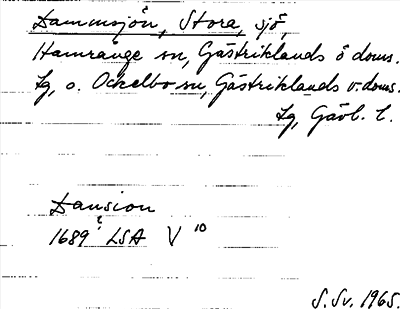 Dammsjön, Stora, sjö,
Hamrånge sn, Gästriklands ö doms.
Lg, o. Ockelbo sn, Gästriklands v. doms.
Lg, Gävl. l.
Dansion
1689 LSA V 10
S. Sv. 1965.